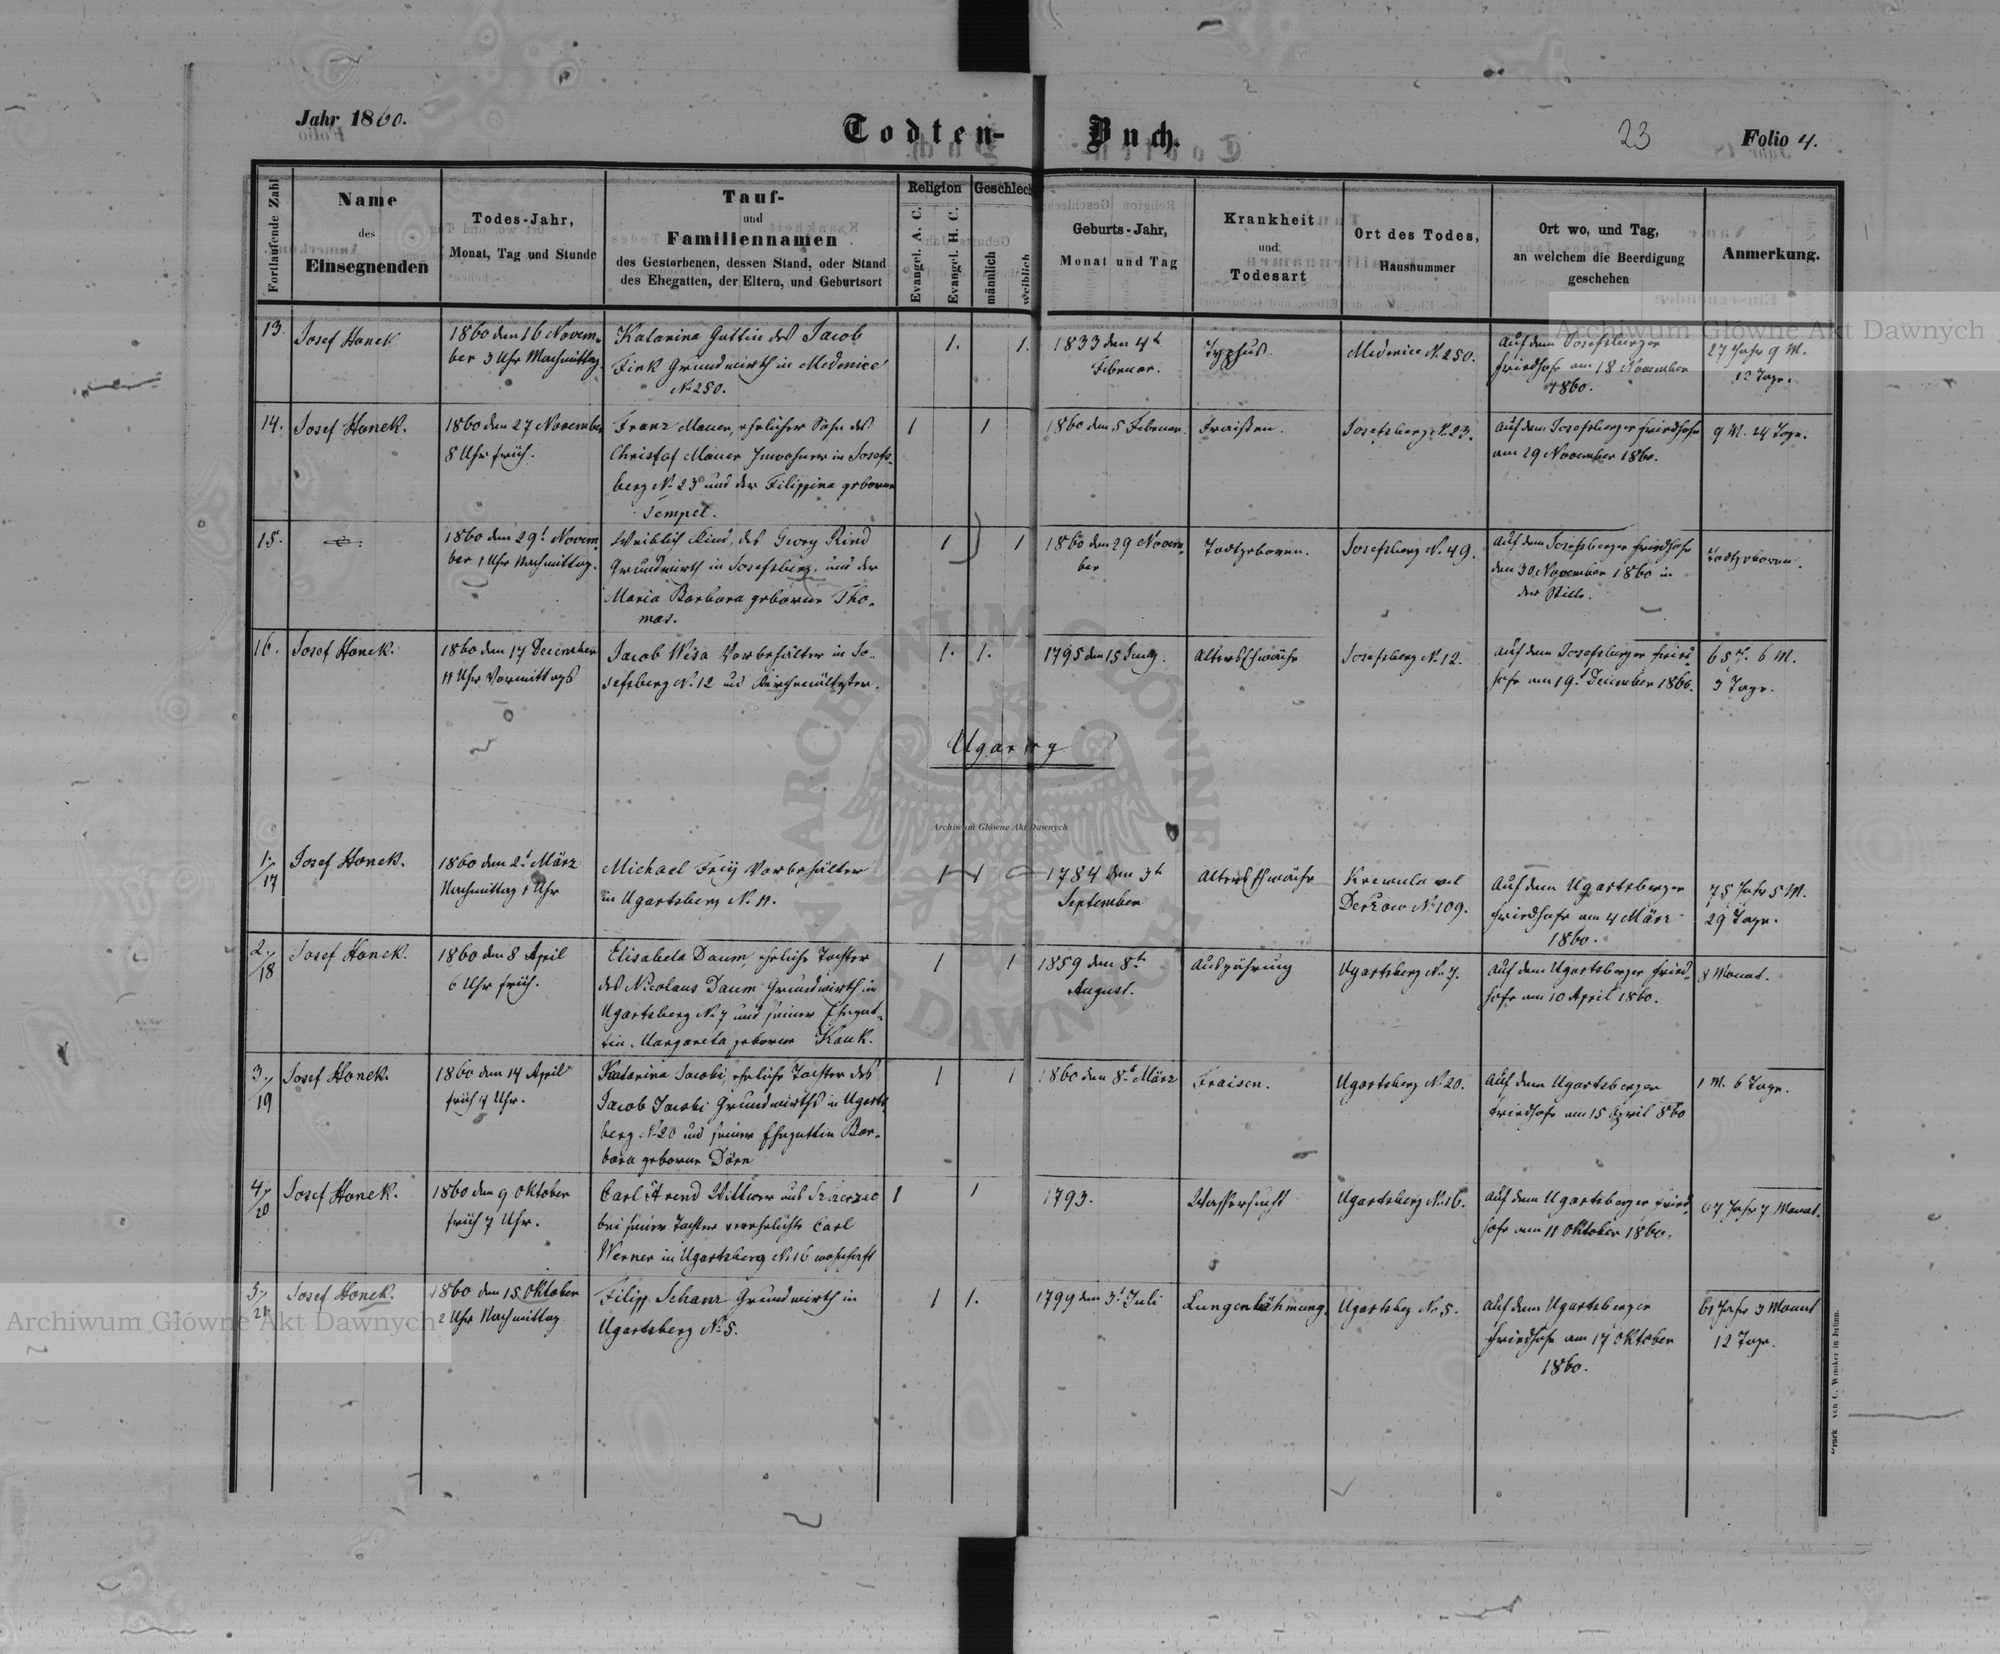 Jahr 1860.
Todten-Buch.
23
Folio 4.
Fortlaufende Zahl
Name
des
Einsegnenden
Todes-Jahr,
Monat, Tag und Stunde
Tauf-
und
Familiennamen
des Gestorbenen, dessen Stand, oder Stand
des Ehegatten, der Eltern, und Geburtsort
Religion
Evangel. A. C.
Evangel. H. C.
Geschlech
männlich
weiblich
Geburts-Jahr,
Monat und Tag
Krankheit
und
Todesart
Ort des Todes,
Hausnummer
Ort wo, und Tag,
an welchem die Beerdigung
geschehen
Anmerkung.
13.
Josef Honek
1860 den 16 Novem-
ber 3 Uhr Nachmittag.
Katarina Gattin des Jacob
Fink Grundwirth in Medenice
No 250.
1.
1.
1833 den 4t
Februar.
Typhus.
Medenice No. 250.
Auf dem Josefsberger
Friedhofe am 18 November
1860.
27 Jahr 9 M.
12 Tage.
14.
Josef Honek.
1860 den 27 November
8 Uhr früh.
Franz Mauer, ehelicher Sohn des
Christof Mauer Inwohner in Josefs-
berg No 23 und der Filippina geborne
Tempel.
1
1
1860 den 5 Februar.
Fraißen.
Josefsberg No. 23.
Auf dem Josefsberger Friedhofe
am 29 November 1860.
9 M. 24 Tage.
15.
1860 den 29t Novem-
ber 1 Uhr Nachmittag.
Weiblich Kind, des Georg Rind
Grundwirth in Josefsberg, und der
Maria Barbara geborne Tho-
mas.
1
1
1860 den 29 Novem-
ber
Todtgeboren.
Josefsberg No. 49.
Auf dem Josefsberger Friedhofe
den 30 November 1860 in
der Stille.
Todtgeboren.
16.
Josef Honek.
1860 den 17 December
11 Uhr Vormittags
Jacob Wesa Vorbehälter in Jo-
sefsberg No. 12 und Kirchenältester.
1.
1.
1795 den 15 Juny.
Altersschwäche
Josefsberg No. 12.
Auf dem Josefsberger Fried-
hofe am 19t December 1860.
65 J. 6 M.
3 Tage.
Ugartsberg
1./17
Josef Honek.
1860 den 2t März
Nachmittag 1 Uhr
Michael Frey Vorbehälter
in Ugartsberg No. 11.
1
1
1784 den 3t
September
Altersschwäche
Krewula vel
Derżow No. 109.
Auf dem Ugartsberger
Friedhofe am 4 März
1860.
75 Jahr 5 M.
29 Tage.
2./18
Josef Honek.
1860 den 8 April
6 Uhr früh.
Elisabeta Daum, eheliche Tochter
des Nicolaus Daum Grundwirth in
Ugartsberg No. 7 und seiner Ehegat-
tin. Margareta geborne Kauk.
1
1
1859 den 8te
August.
Auszährung
Ugartsberg No. 7.
Auf dem Ugartsberger Fried-
hofe am 10 April 1860.
8 Monat.
3./19
Josef Honek.
1860 den 14 April
früh 4 Uhr.
Katarina Jacobi, eheliche Tochter des
Jacob Jacobi Grundwirths in Ugarts-
berg No 20 und seiner Ehegattin Bar-
bara geborne Dörn
1
1
1860 den 8t März
Fraisen.
Ugartsberg No. 20.
Auf dem Ugartsberger
Friedhofe am 15 April 860
1 M. 6 Tage.
4./20
Josef Honek.
1860 den 9 Oktober
früh 7 Uhr.
Carl Arend Wittwer aus Szczerzec
bei seiner Tochter verehelichte Carl
Werner in Ugartsberg No. 16 wohnhaft
1
1
1793.
Wassersucht
Ugartsberg No. 16.
Auf dem Ugartsberger Fried-
hofe am 11 Oktober 1860.
67 Jahr 7 Monat.
5./21
Josef Honek.
1860 den 15 Oktober
2 Uhr Nachmittag
Filipp Schanz Grundwirth in
Ugartsberg No. 5.
1
1.
1799 den 3t Juli
Lungenlähmung.
Ugartsbeg No. 5.
Auf dem Ugartsberger
Friedhofe am 17 Oktober
1860.
61 Jahr 3 Monat
12 Tage.
Archiwum Główne Akt Dawnych
Archiwum Główne Akt Dawnych
Archiwum Główne Akt Dawnych
ARCHIWUM GŁÓWNE AKT DAWNYCH